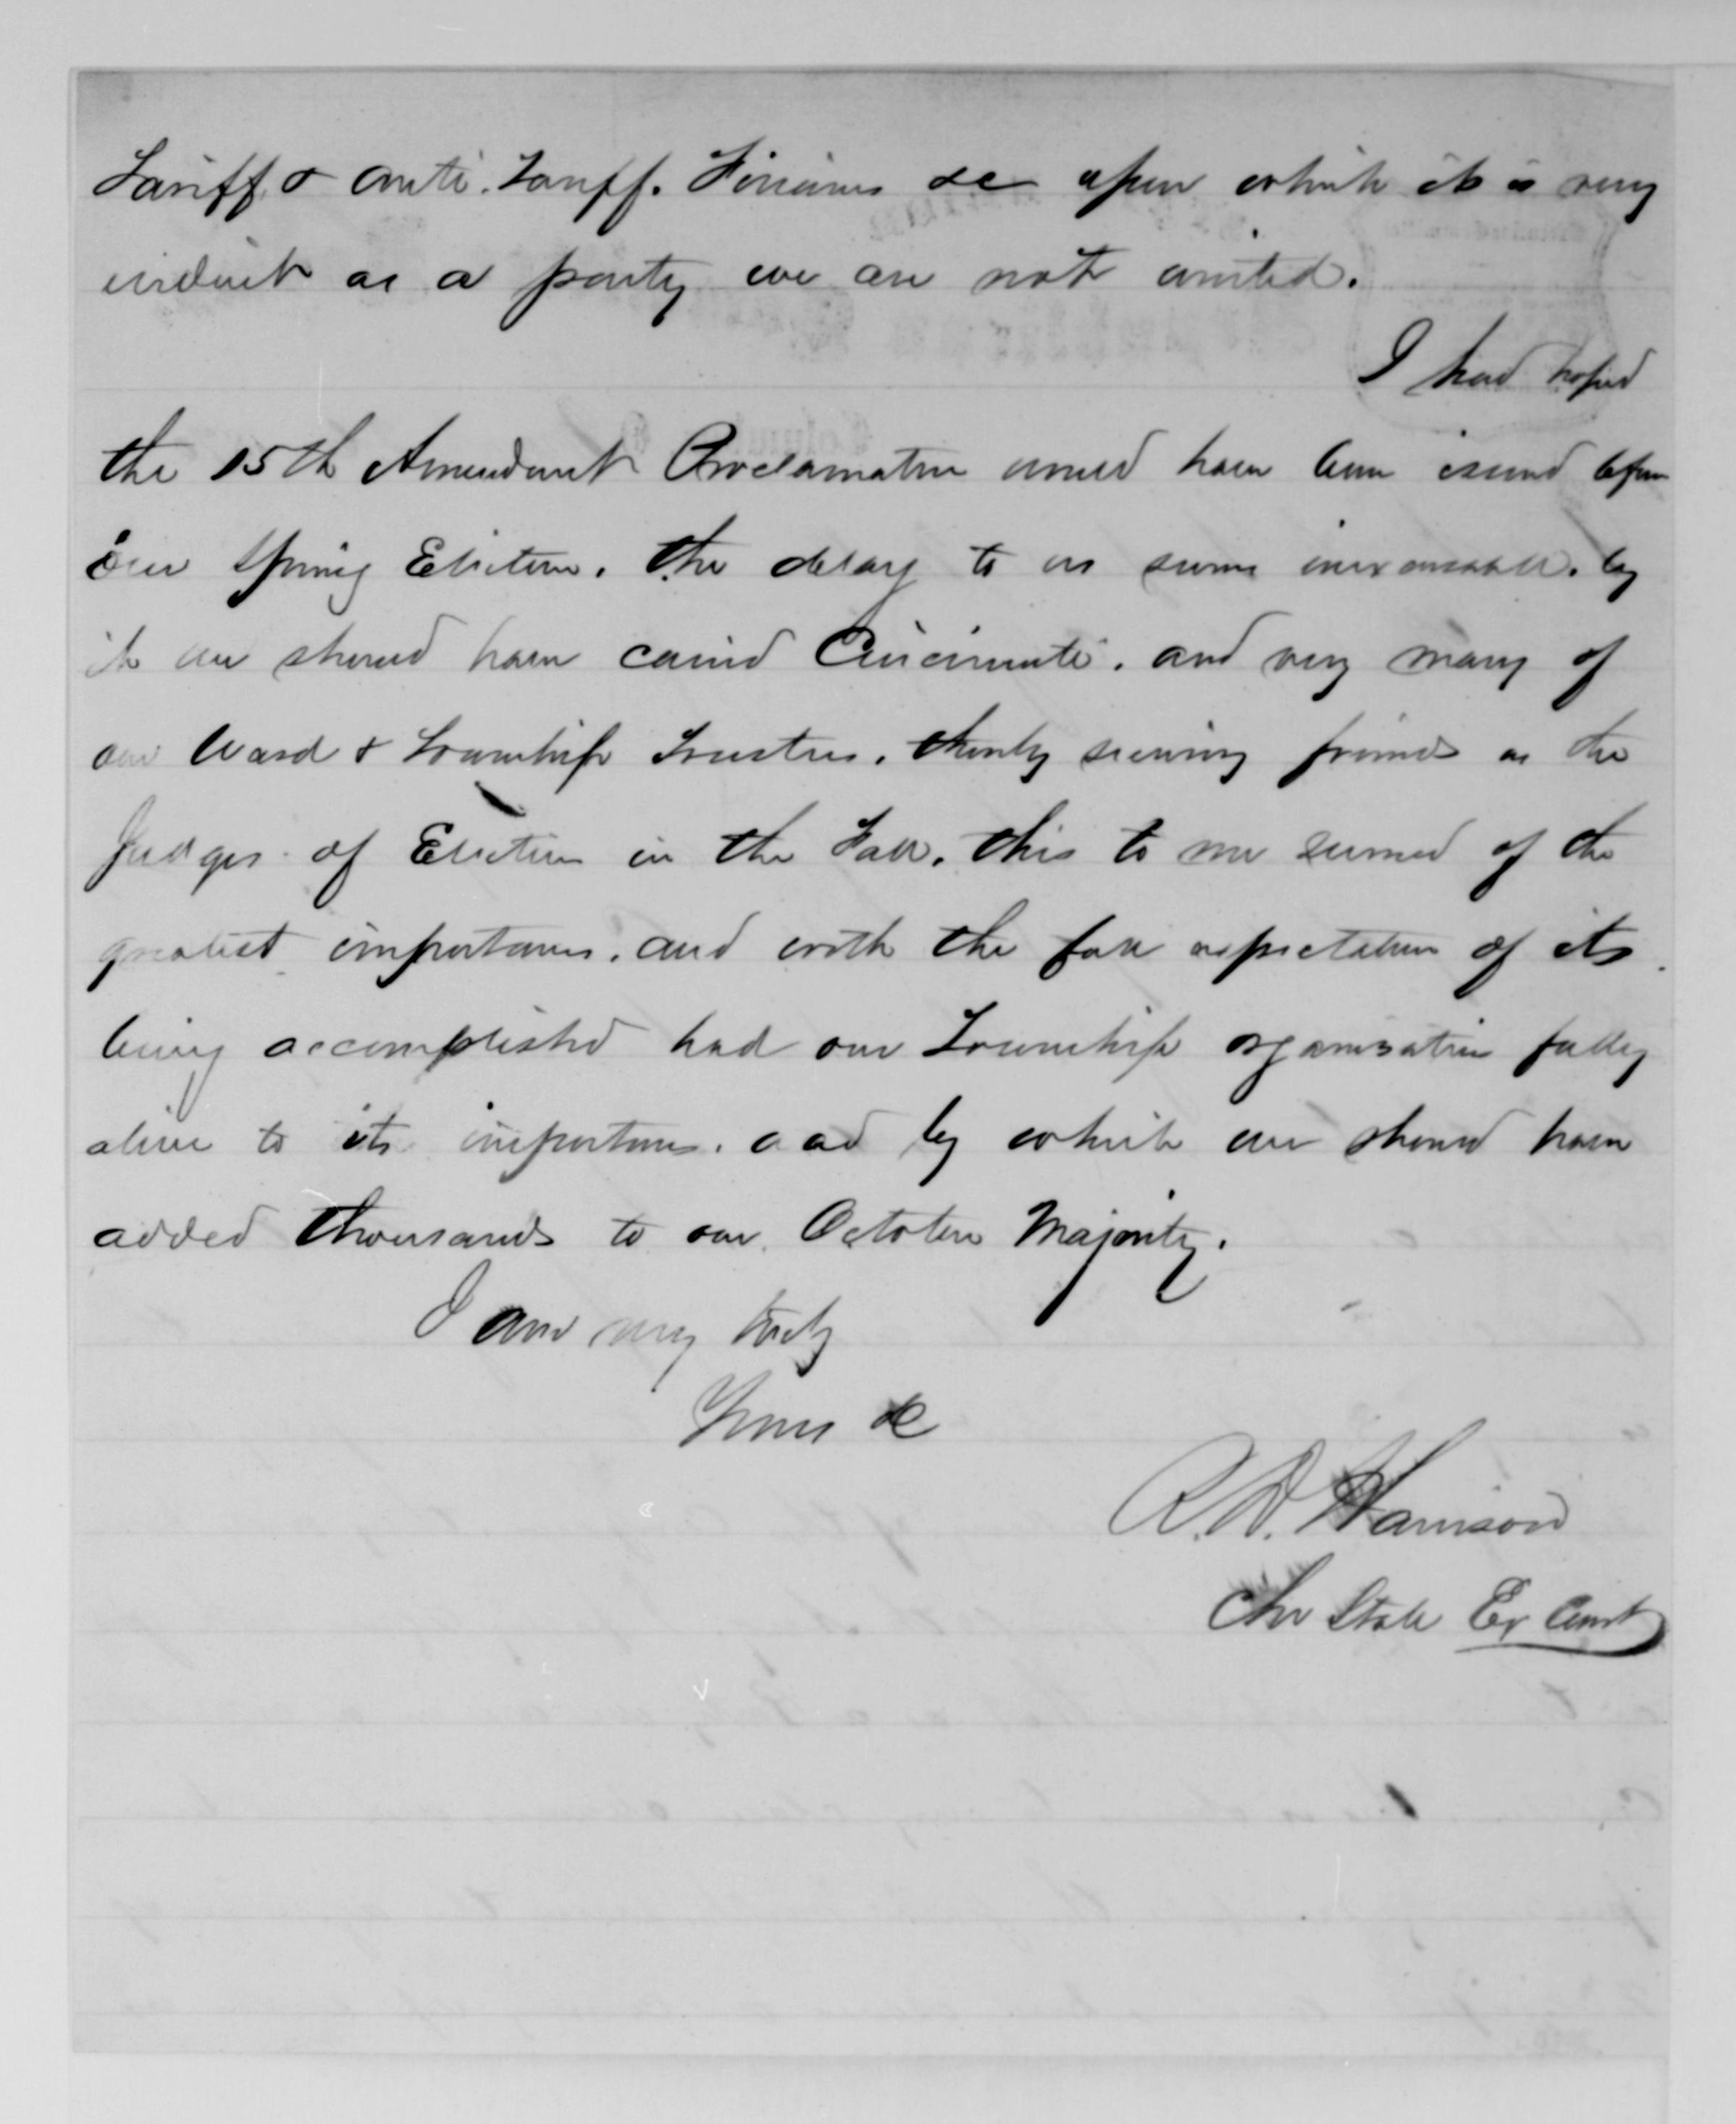 Tariff & anti. Tariff. Finances &c upon which it is very
evident as a party we are not united.
I had hoped
the 15th Amendment Proclamation would have been issued before
our Spring Election. the delay to us seems inexcusable. by
it we should have carried Cincinnati. and very many of
our Ward & Township Trustees. thereby securing friends as the
Judges of Election in the Fall. this to me seemed of the
greatest importance. and with the full expectation of its
being accomplished had our Township organization fully
alive to its importance. and by which we should have
added thousands to our October Majority.
I am very truly
Yours &c
R. D. Harrison
Chr State Ex Comt